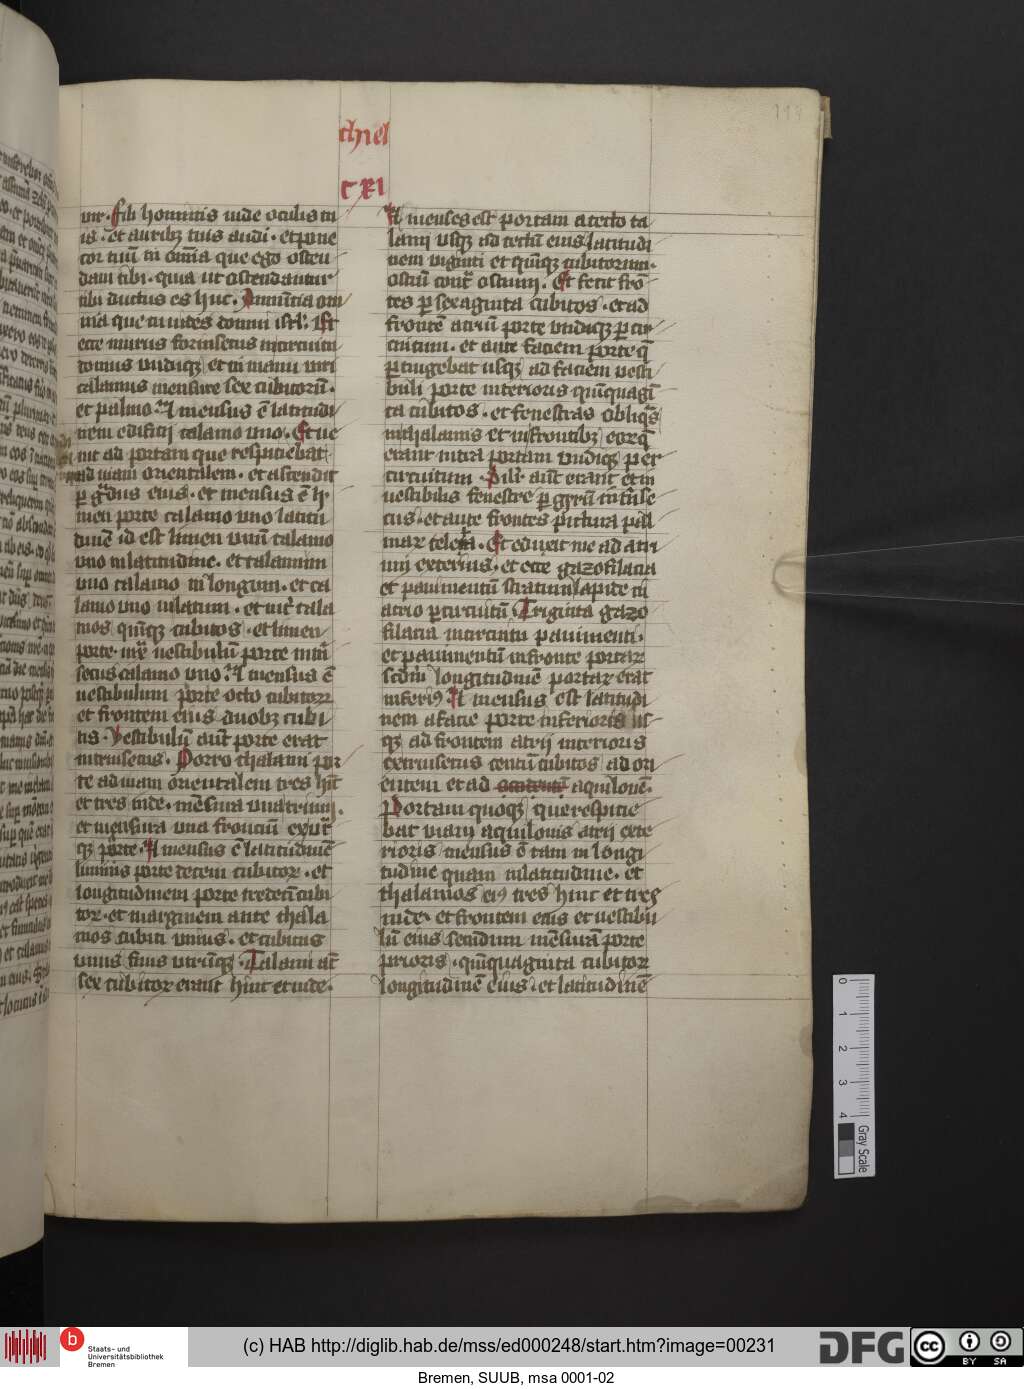 chiel
CXI
uir · fili hominis uide oculis tu
is · et auribꝫ tuis audi · et pone
cor tuū in om̄ia que ego osten
dam tibi · quia ut ostendantur
tibi ductus es huc · Annūtia om
nia que tu uides domui isrl̄ · Et
ecce murus forinsecus incircuitu
domus undiqꝫ et in manu uiri
calamus mensure sex cubitorū ·
et palmo · Et mensus ē latitudi
nem edificij calamo uno · Et ue
nit ad portam que respiciebat
ad uiam orientalem · et ascendit
p gͣdus eius · et mensus ē li
men porte calamo uno latitu
dinē id est limen unū calamo
uno in latitudine · et talamum
uno calamo in longum · et ca
lamo uno in latum · et int̄ tala
mos quīqꝫ cubitos · et limen
porte · iux̄ uestibulū porte intrī
secus calamo uno · Et mensus ē
uestibulum porte octo cubitorꝝ
et frontem eius duobꝫ cubi
tis · Vestibulū aūt porte erat
intrinsecus · Porro thalami por
te ad uiam orientalem tres hīc
et tres inde · mēsura una trium ·
et mensura una frontiū ex utͣ
qꝫ parte · Et mensus ē latitudinē
liminis porte decem cubitorꝝ · et
longitudinem porte tredecī cubi
torꝝ · et marginem ante thala
mos cubiti unius · et cubitus
unus finis utrūqꝫ · Talami aūt
sex cubitorꝝ erant hinc et inde ·
Et mensus est portam a tecto ta
lami usqꝫ ad tectū eius latitudi
nem uiginti et quīqꝫ cubitorum ·
ostiū cont̄ ostium · Et fecit frō
tes p sexaginta cubitos · et ad
frontē atriū porte undiqꝫ p cir
cuitum · et ante faciem porte q̄
ptingebat usqꝫ ad faciem uesti
buli porte interioris quīquagī
ta cubitos · et fenestras obliqͣs
in thalamis et in frontibꝫ eorꝝ q̄
erant intra portam undiqꝫ per
circuitum · Silr̄ aūt erant et in
uestibilis fenestre p gyrū intrīse
cus · et ante frontes pictura pal
marꝝ celata · Et eduxit me ad atri
um exterius · et ecce gazofilacia
et pauimentū stratum lapide in
atrio p circuitū · Triginta gazo
filacia incircuitu pauimenti ·
et pauimentū in fronte portarꝝ
scd̄m longitudinē portarꝝ erat
inferiꝰ · Et mensus est latitudi
nem a facie porte inferioris us
qꝫ ad frontem atrij interioris
extrinsecus centū cubitos ad ori
entem et ad aquilonē ·
Portam quoqꝫ que respicie
bat uiam aquilonis atrij exte
rioris mensus ē tam in longi
tudine quam in latitudine · et
thalamos eiꝰ tres hinc et tres
inde · et frontem eius et uestibu
lū eius secundum mēsurā porte
prioris · quīquaginta cubitorꝝ
longitudinē eius · et latitudinē
0
1
2
3
4
Gray Scale
B
Staats- und
Universitätsbibliothek
Bremen
(c) HAB http://diglib.hab.de/mss/ed000248/start.htm?image=00231
DFG
cc
BY SA
Bremen, SUUB, msa 0001-02